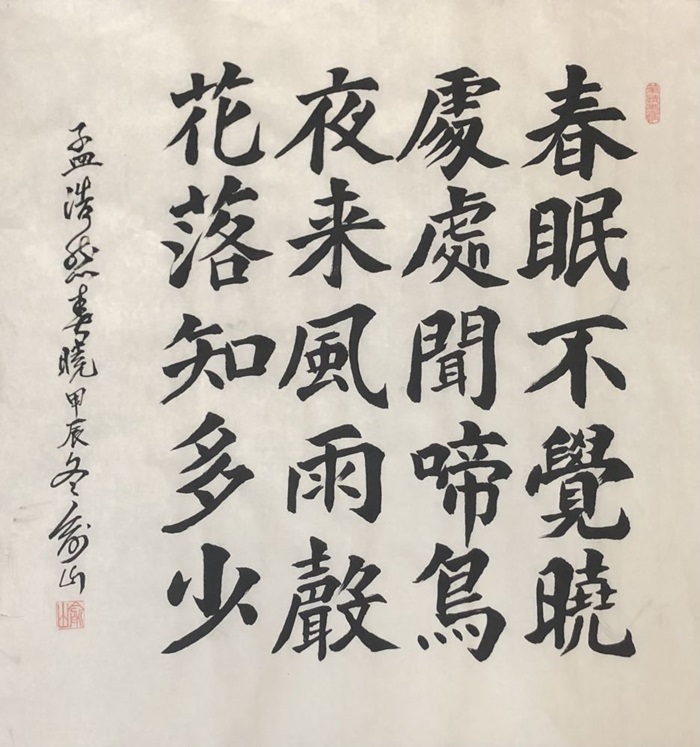 春眠不覺曉
處處聞啼鳥
夜来風雨聲
花落知多少
孟浩然春曉甲辰冬俞山
俞山